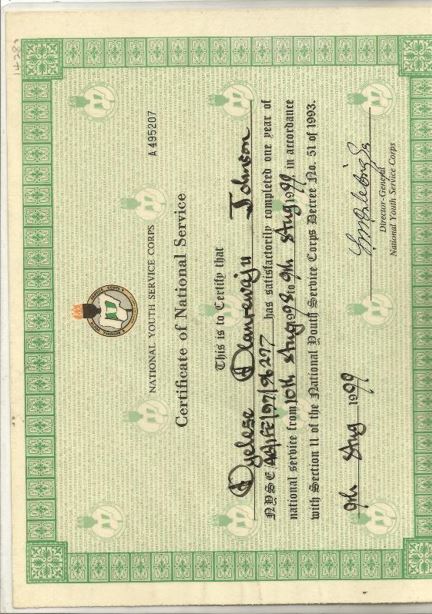 A 495207
NATIONAL YOUTH SERVICE CORPS
Certificate of National Service
This is to Certify that
Oyelese Olanrewaju Johnson
NYSC has satisfactorily completed one year of
national service from 10th Aug 1998 to 9th Aug 1999 in accordance
with Section 11 of the National Youth Service Corps Decree No. 51 of 1993.
9th Aug 1999
Director-General
National Youth Service Corps